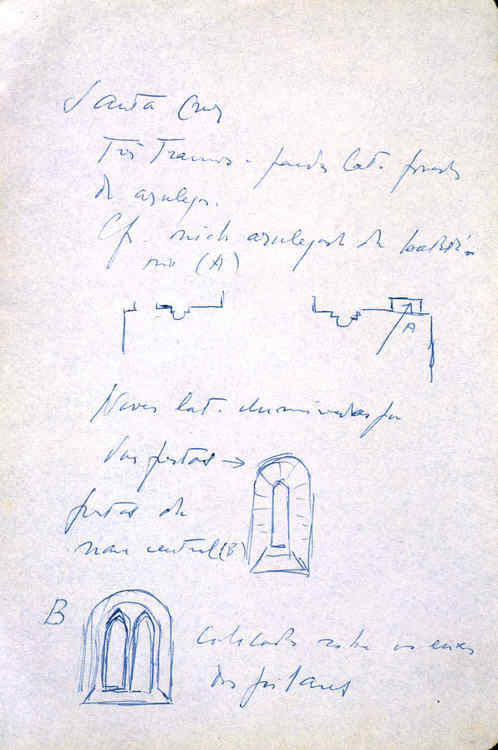 Santa Cruz
Três Tramos - paredes lat. forradas
de azulejos.
Cf. nicho azulejado de baptisté-
rio (A)
A
Naves lat. iluminadas por
duas frestas →
frestas da
nave central (B)
B
Colocadas sobre os eixos
dos pilares